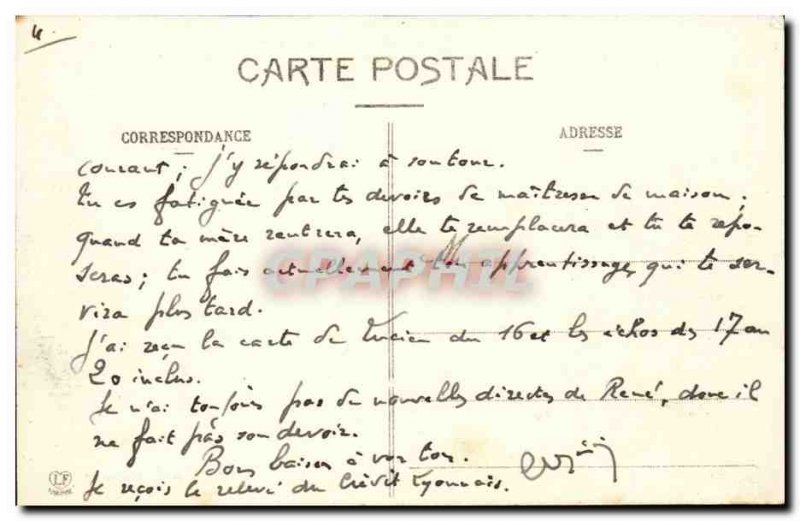 4
CARTE POSTALE
CORRESPONDANCE
ADRESSE
courant; j'y répondrai à son tour.
Tu es fatiguée par tes devoirs de maîtresse de maison;
quand ta mère rentrera, elle te remplacera et tu te repo-
seras; tu fais actuellement ton apprentissage, qui te ser-
vira plus tard.
J'ai reçu la carte de Lucien du 16 et les échos des 17 au
20 inclus.
Je n'ai toujours pas de nouvelles directes de René, donc il
ne fait pas son devoir.
Bons baisers à vous tous.
Je reçois le relevé du Crédit Lyonnais.
CPAPHIL
LF